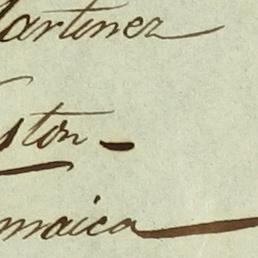 artinez
ston
maica